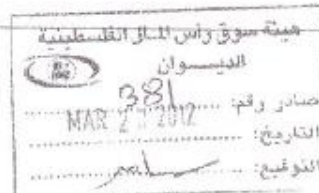 هيئة سوق رأس المال الفلسطينية
الديوان
صادر رقم: 381
التاريخ: MAR 2 2012
التوقيع: